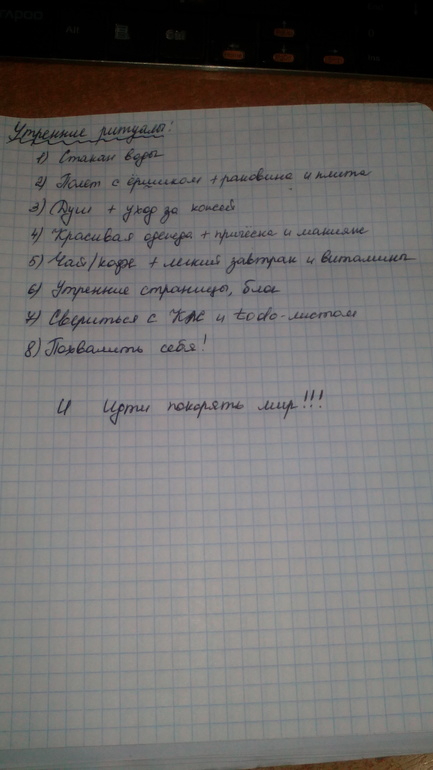 Утренние ритуалы:
1) Стакан воды
2) Полёт с ёршиком + раковина и плита
3) Душ + уход за кожей
4) Красивая одежда + причёска и макияж
5) Чай/кофе + легкий завтрак и витамины
6) Утренние страницы, блог
7) Свериться с КРС и todo-листом
8) Похвалить себя!
И Идти покорять мир!!!